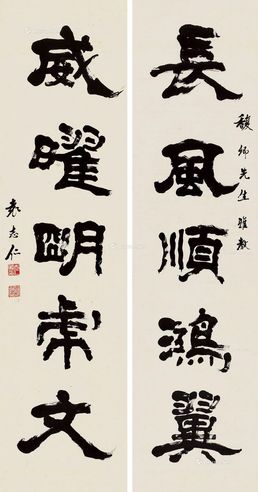 長風順鴻翼
馥師先生雅教
威曜明虎文
袁志仁